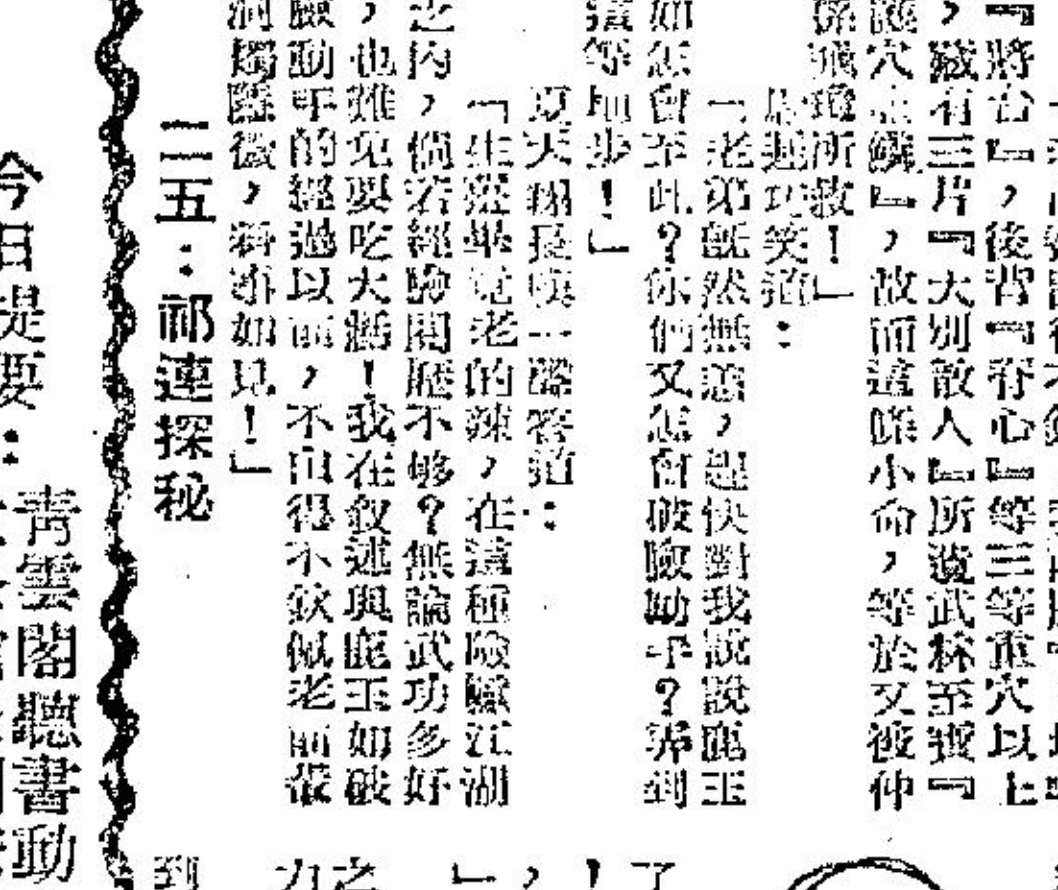 『將台』，後背『脊心』等三等重穴以上
，藏有三片『大別散人』所遺武林至寶『
護穴金鱗』，故而這條小命，等於又被仲
孫飛瓊所救！」
笑道：
「老弟既然無恙，趕快對我說說鹿玉
如怎會至此？你們又怎會破臉動手？弄到
這等地步！」
夏天翔長嘆一聲答道：
「生薑畢竟老的辣，在這種險巇江湖
之內，倘若經驗閱歷不够？無論武功多好
，也難免要吃大虧！我在叙述與鹿玉如破
臉動手的經過以前，不由得不欽佩老前輩
洞燭隱微，料事如見！」
二五：祁連探秘
今日提要：
青雲閣聽書動